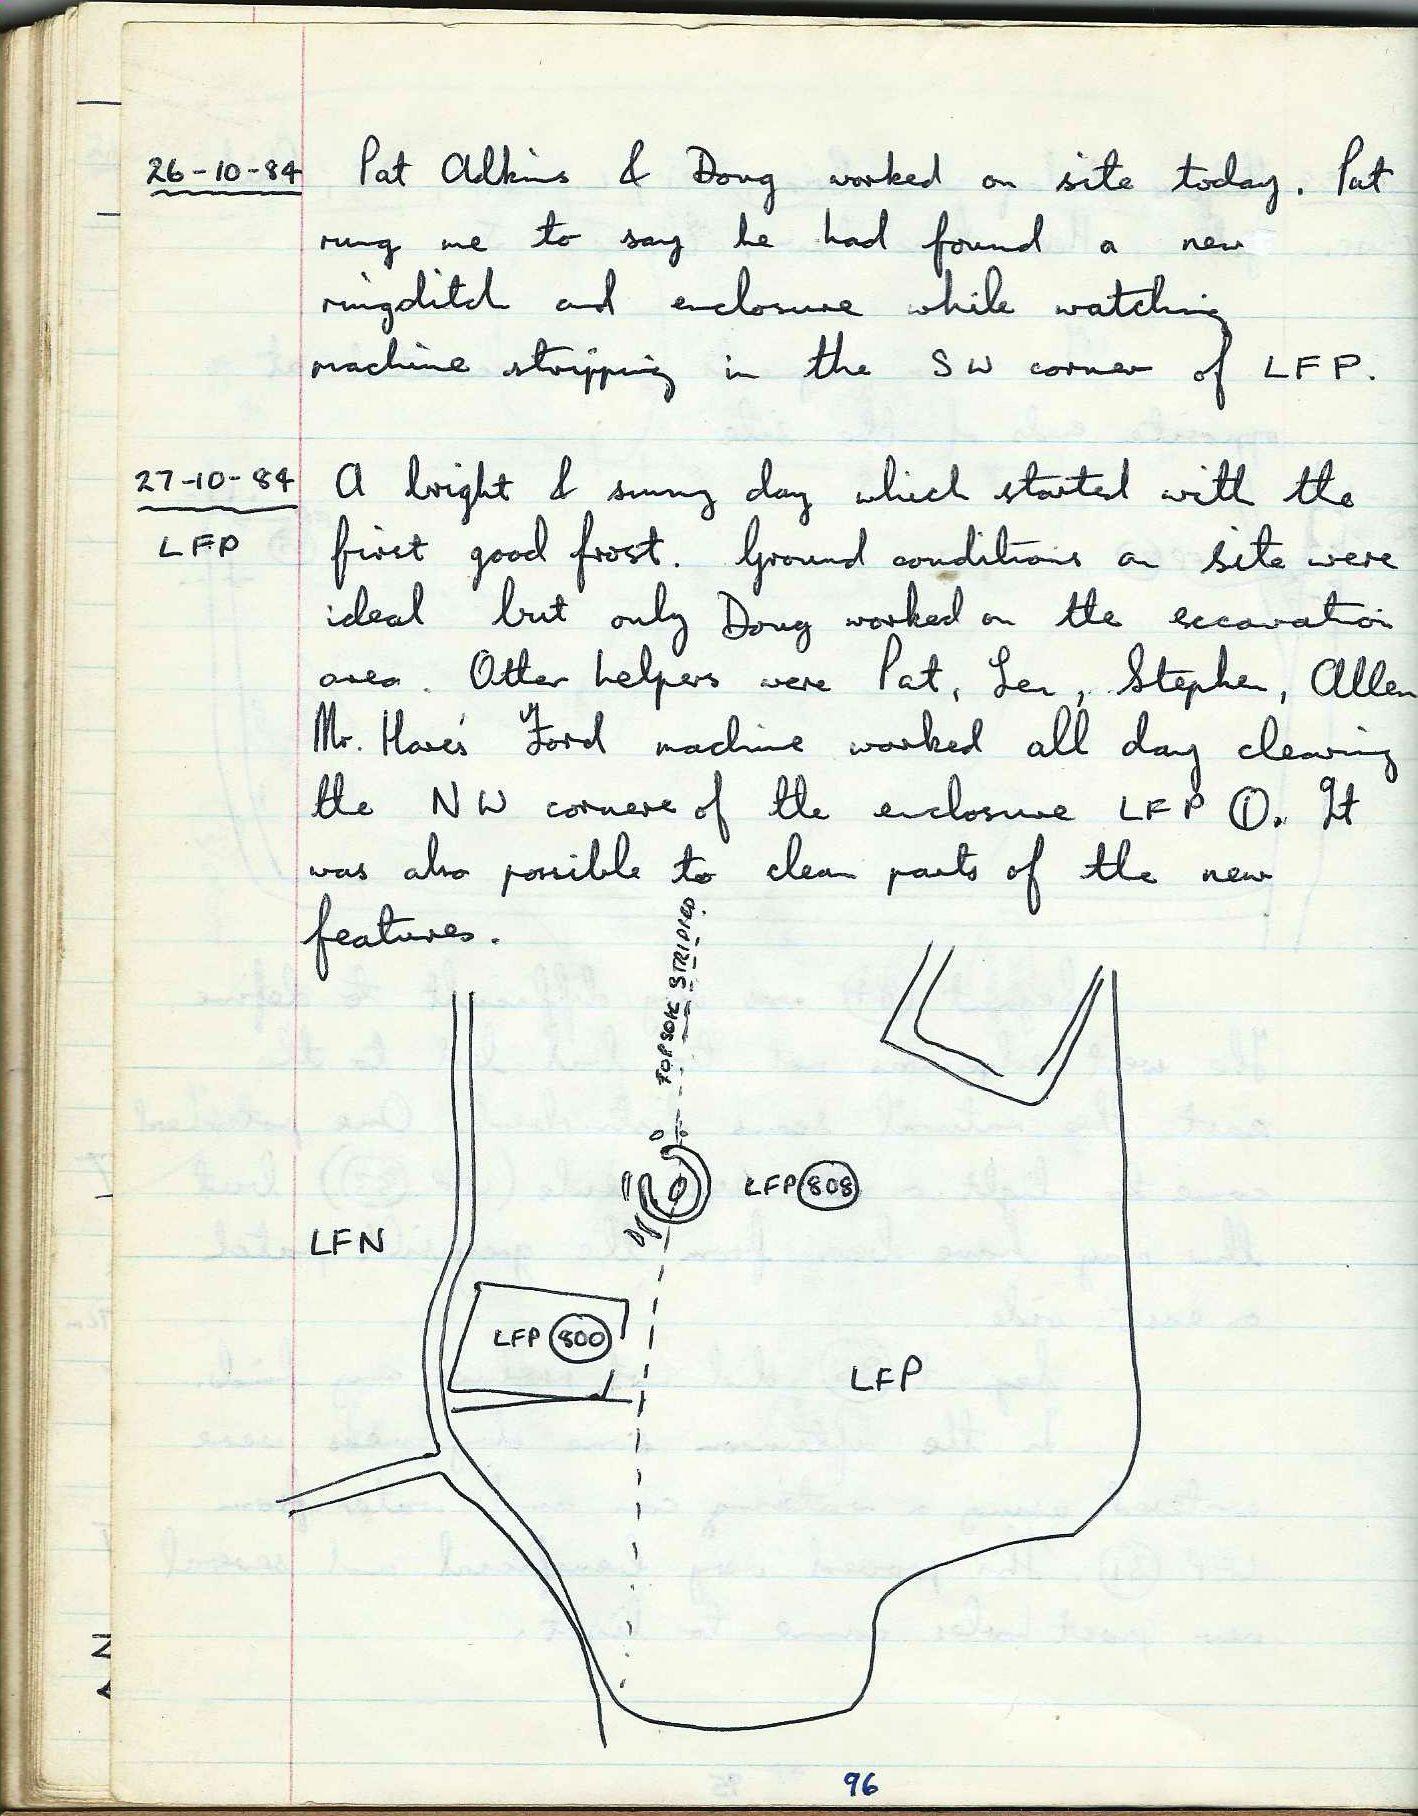 26-10-84 Pat Adkins & Doug worked on site today. Pat
rung me to say he had found a new
ringditch and enclosure while watching
machine stripping in the SW corner of LFP.
27-10-84 A bright & sunny day which started with the
LFP first good frost. Ground conditions on site were
ideal but only Doug worked on the excavation
area. Other helpers were Pat, Len, Stephen, Allen
Mr. Hare's Ford machine worked all day clearing
the NW corner of the enclosure LFP ①. It
was also possible to clean parts of the new
features.
TOPSOIL STRIPPED.
LFP 808
LFN
LFP 800
LFP
96
N